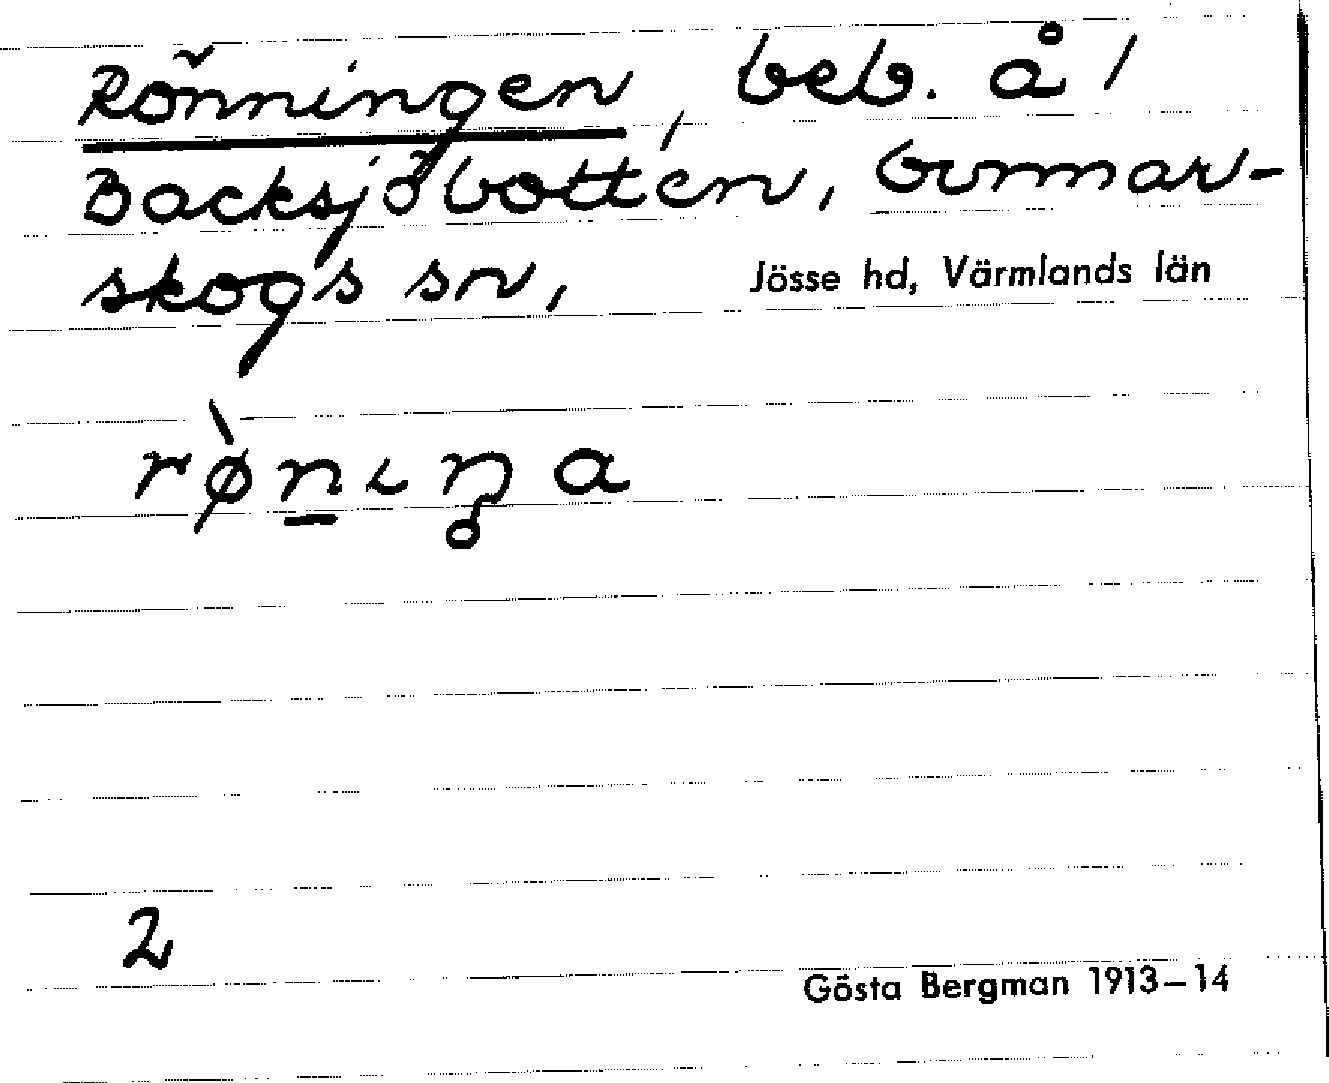 Rönningen, beb. å /
Backsjöbotten, Gunnar-
skogs sn, Jösse hd, Värmlands län
rø̀n̲ɩŋ̥a
2
Gösta Bergman 1913–14